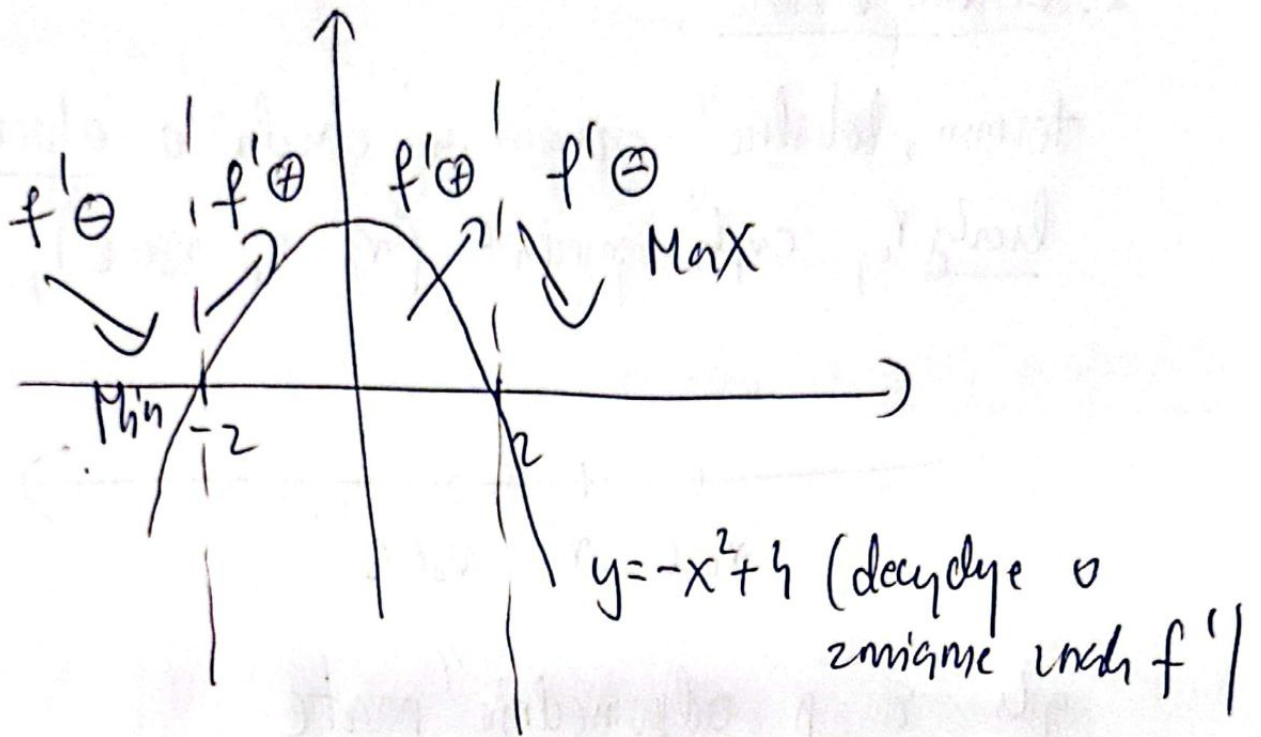 f'⊖ f'⊕ f'⊕ f'⊖
Max
Min -2 2
y=-x²+4 (decyduje o
zmianie znaku f')